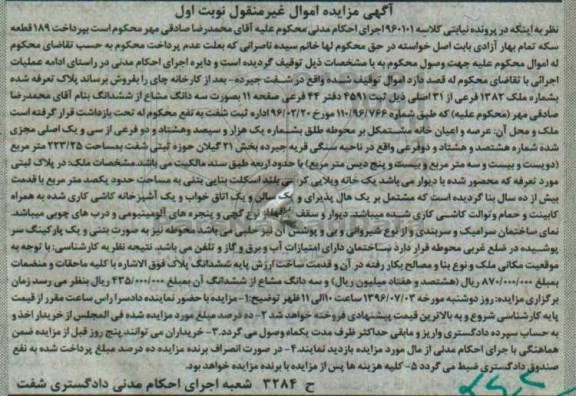 آگهی مزایده اموال غیرمنقول نوبت اول
نظر به اینکه در پرونده نیابتی کلاسه ۹۶۰۱۰۱ اجرای احکام مدنی محکوم علیه آقای محمدرضا صادقی مهر محکوم است بپرداخت ۱۸۹ قطعه
سکه تمام بهار آزادی بابت اصل خواسته در حق محکوم لها خانم سیده ناصرانی که بعلت عدم پرداخت محکوم به حسب تقاضای محکوم
له اموال محکوم علیه جهت وصول محکوم به با مشخصات ذیل توقیف گردیده است و دایره اجرای احکام مدنی در راستای ادامه عملیات
اجرائی با تقاضای محکوم له قصد دارد اموال توقیف شده واقع در شفت جیرده- بعد از کارخانه چای را بفروش برساند پلاک تعرفه شده
بشماره ملک ۱۳۸۲ فرعی از ۳۱ اصلی ذیل ثبت ۴۵۹۱ دفتر ۴۴ فرعی صفحه ۱۱ بصورت سه دانگ مشاع از ششدانگ بنام آقای محمدرضا
صادقی مهر (محکوم علیه) که طبق شماره ۱۱۰/۹۶/۷۶۶ مورخ ۹۶/۰۲/۲۰ اداره ثبت شفت به نفع محکوم له تحت بازداشت قرار گرفته است
ملک و محل آن: عرصه و اعیان خانه مشتمکل بر محوطه طلق بشماره یک هزار و سیصد و هشتاد و دو فرعی از سی و یک اصلی مجزی
شده شماره هشتصد و هشتاد و دو فرعی واقع در ناحیه سنگی قریه جیرده بخش ۲۱ گیلان حوزه ثبتی شفت بمساحت ۲۲۳/۲۵ متر مربع
(دویست و بیست و سه متر مربع و بیست و پنج دیس متر مربع) با حدود اربعه طبق سند مالکیت می باشد. مشخصات ملک: در پلاک ثبتی
مورد تعرفه که محصور شده با دیوار می باشد یک خانه ویلایی کرسی بلند اسکلت بنایی بتنی به مساحت حدود یکصد متر مربع با قدمت
بیش از ده سال بنا گردیده است که مشتمل بر یک هال پذیرای و یک سالن و یک اتاق خواب و یک آشپزخانه کاشی کاری شده به همراه
کابینت و حمام و توالت کاشی کاری شده میباشد. دیوار و سقف گچ و پنجره های آلومینیومی و درب های چوبی میباشد.
نمای ساختمان سرامیک و سربندی و از نوع شیروانی و پوشش آن نیز حلبی می باشد محوطه نیز به صورت بتنی و یک پارکینگ سر
پوشیده در ضلع غربی محوطه قرار دارد ساختمان دارای امتیازات آب و برق و گاز و تلفن می باشد. نتیجه نظریه کارشناسی: با توجه به
موقعیت مکانی ملک و نوع بنا و مصالح بکار رفته در آن و قدمت ساخت ارزش پایه ششدانگ پلاک فوق الاشاره با کلیه ملحقات و منضمات
بمبلغ ۸۷۰/۰۰۰/۰۰۰ ریال (هشتصد و هفتاد میلیون ریال) و سه دانگ مشاع از ششدانگ آن بمبلغ ۴۳۵/۰۰۰/۰۰۰ ریال بنظر می رسد زمان
برگزاری مزایده: روز دوشنبه مورخه ۱۳۹۶/۰۷/۰۳ ساعت ۱۰ الی ۱۱ ظهر توضیح: ۱- مزایده با حضور نماینده دادسرا راس ساعت مقرر از قیمت
پایه کارشناسی شروع و به بالاترین قیمت پیشنهادی فروخته خواهد شد ۲- ده درصد مبلغ مورد مزایده شده فی المجلس از خریدار اخذ و
به حساب سپرده دادگستری واریز و مابقی حداکثر ظرف مدت یکماه وصول می گردد. ۳- خریداران می توانند پنج روز قبل از مزایده ضمن
هماهنگی با اجرای احکام مدنی از مال مورد مزایده بازدید نمایند. ۴- در صورت انصراف برنده مزایده ده درصد مبلغ پرداخت شده به نفع
صندوق دادگستری ضبط می گردد ۵- کلیه هزینه ها پس از مزایده با برنده مزایده خواهد بود.
ح ۳۲۸۴ شعبه اجرای احکام مدنی دادگستری شفت